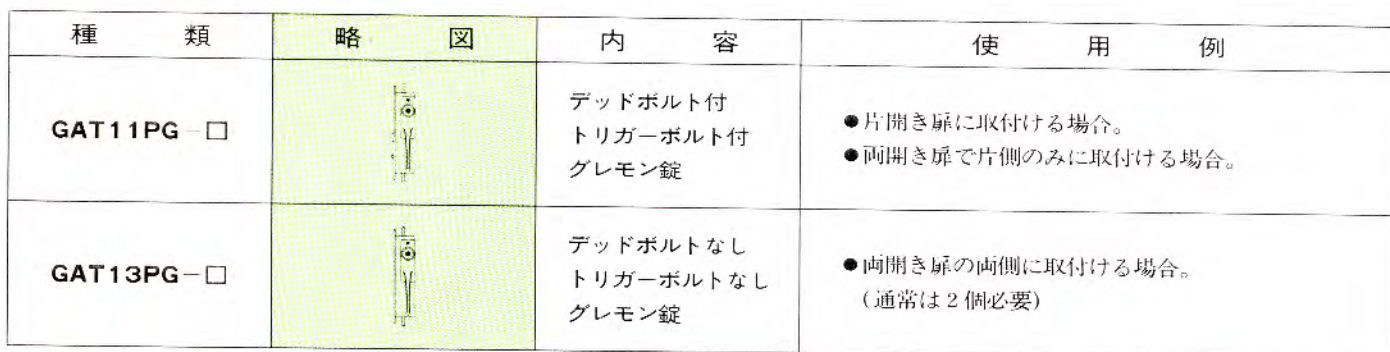 種類 略図 内容 使用例
GAT11PG-□
デッドボルト付
トリガーボルト付
グレモン錠
●片開き扉に取付ける場合。
●両開き扉で片側のみに取付ける場合。
GAT13PG-□
デッドボルトなし
トリガーボルトなし
グレモン錠
●両開き扉の両側に取付ける場合。
(通常は2個必要)